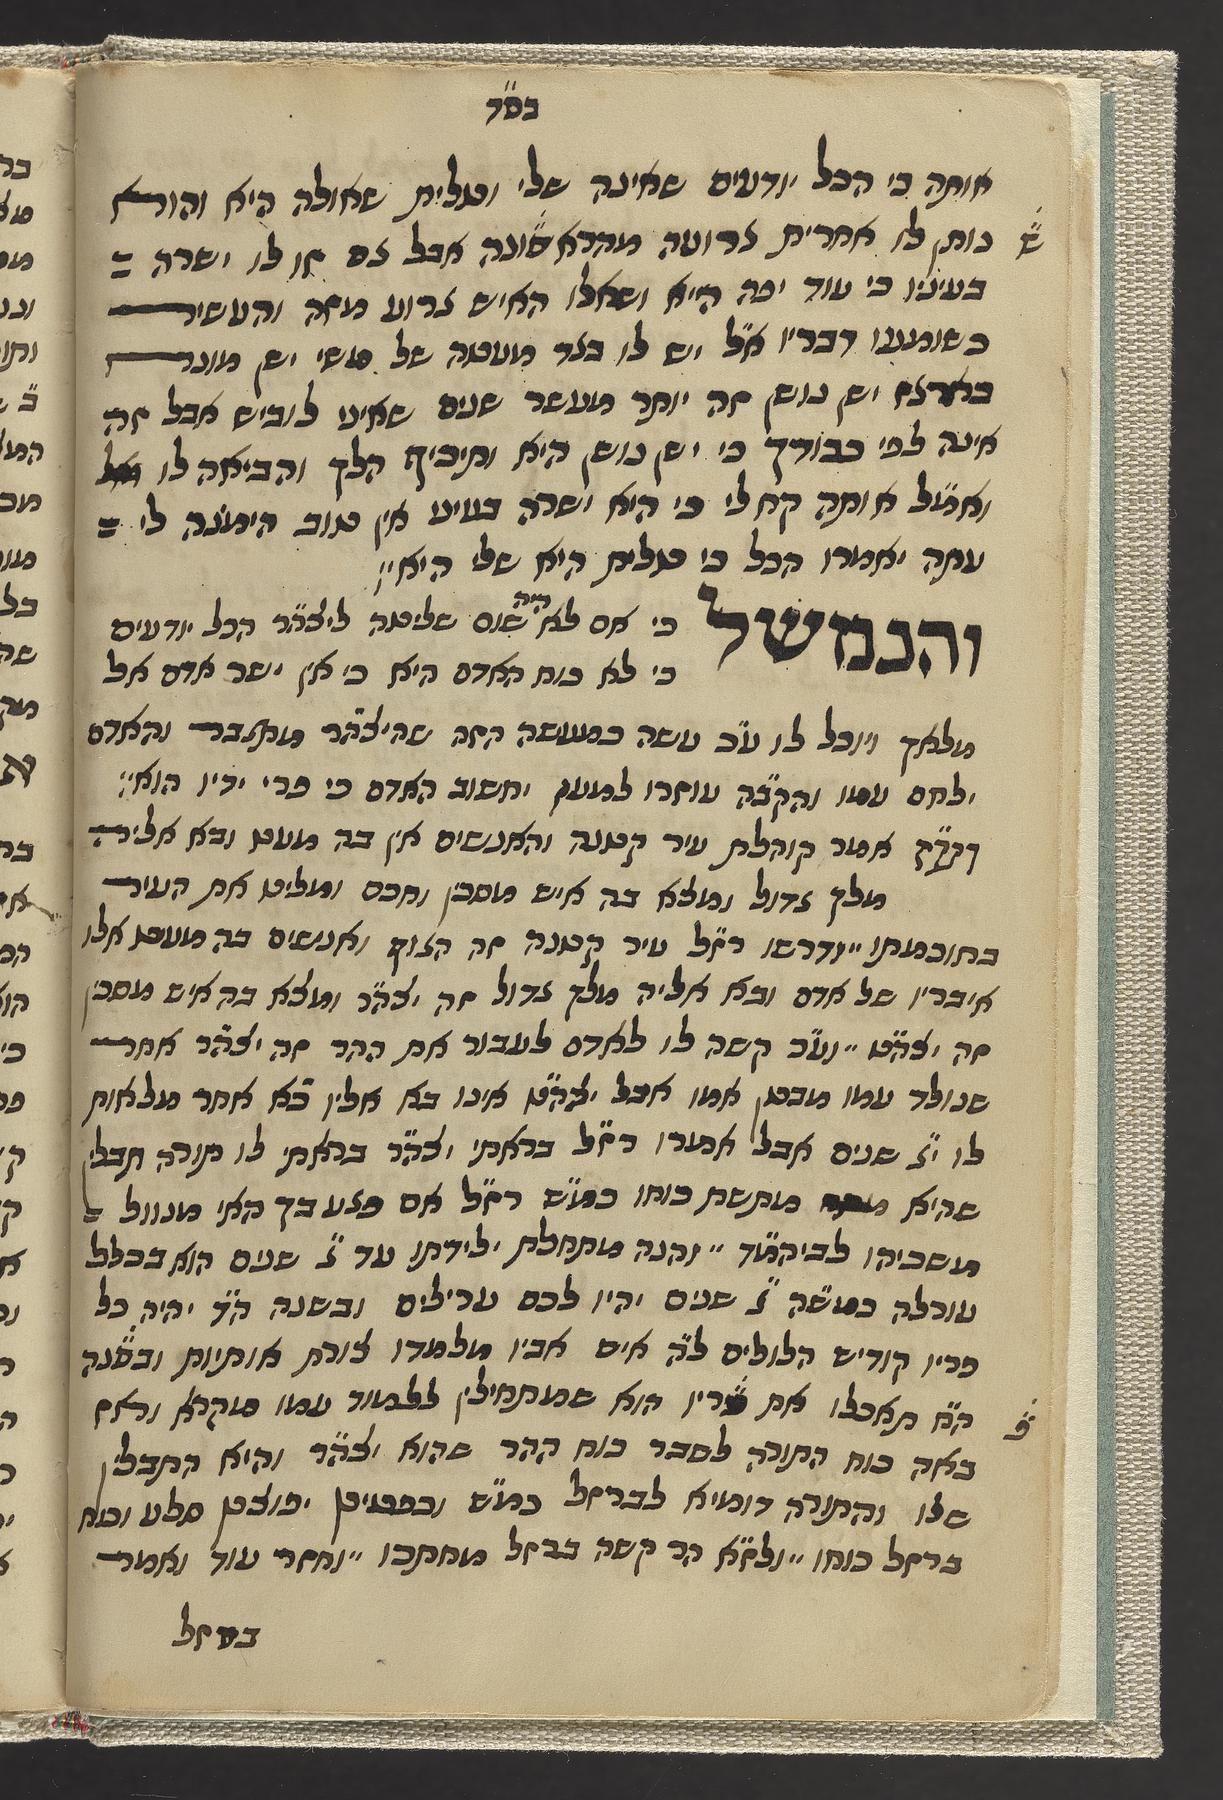 בס"ד
אותה כי הכל יודעים שאינה שלי וטלית שאולה היא והוא
נותן לו אחרית גרועה מהראשונה אבל גם זו לו ישרה
בעיניו כי עוד יפה היא ושאלו האיש גרוע מזה והעשיר
כשומענו דבריו א"ל יש לו בגד מעטה של משי ישן מונח
בארגז ישן נושן זה יותר מעשר שנים שאיני לובש אבל זה
אינה לפי כבודך כי ישן נושן היא ותיכיף הלך והביאה לו
וא"ל אותה קח לי כי היא ישרה בעיני אין טוב הימנה לי
עתה יאמרו הכל כי טלית היא שלי היא"
והנמשל כי אם לא היה שום שליטה ליצה"ר הכל יודעים
כי לא כוח האדם היא כי אין ישר אדם אל
מלאך ויוכל לו ע"כ עשה כמעשה הזה שהיצה"ר מתגבר והאדם
ילחם עמו והקב"ה עוזרו למען יחשוב האדם כי פרי ידיו הוא"
אמר קוהלת עיר קטנה והאנשים אין בה מעט ובא אליה
מלך גדול ומצא בה איש מסכין וחכם ומליט את העיר
בחוכמתו" ודרשו רז"ל עיר קטנה זה הגוף ואנשים בה מעט אלו
איבריו של אדם ובא אליה מלך גדול זה יצה"ר ומצא בה איש מסכין
זה יצה"ט" וע"כ קשה לו לאדם לעבור את ההר זה יצה"ר אחר
שנולד עמו מבטן אמו אבל יצה"ט אינו בא אליו כ"א אחר מלאות
לו י"ג שנים אבל אמרו רז"ל בראתי יצה"ר בראתי לו תורה תבלין
שהיא מתשת כוחו כמ"ש רז"ל אם פגע בך האי מנוול
משכיהו לביהמ"ד" והנה מתחלת ילידתו עד ג' שנים הוא בכלל
עורלה כמש"ה ג' שנים יהיו לכם ערילים ובשנה הד' יהיה כל
פריו קודיש הלולים לה' איש אביו מלמדו צורת אותיות ובשנה
הח' תאכלו את פריו הוא שמתחילין ללמוד עמו מקרא ואז
באה כוח התורה לשבר כוח ההר שהוא יצה"ר והיא התבלין
שלו והתורה דומיא לברזל כמ"ש וכפטיש יפוצץ סלע וכוח
ברזל כוחו" ולז"א הר קשה ברזל מחתכו" וחזר עוד ואמר
ברזל